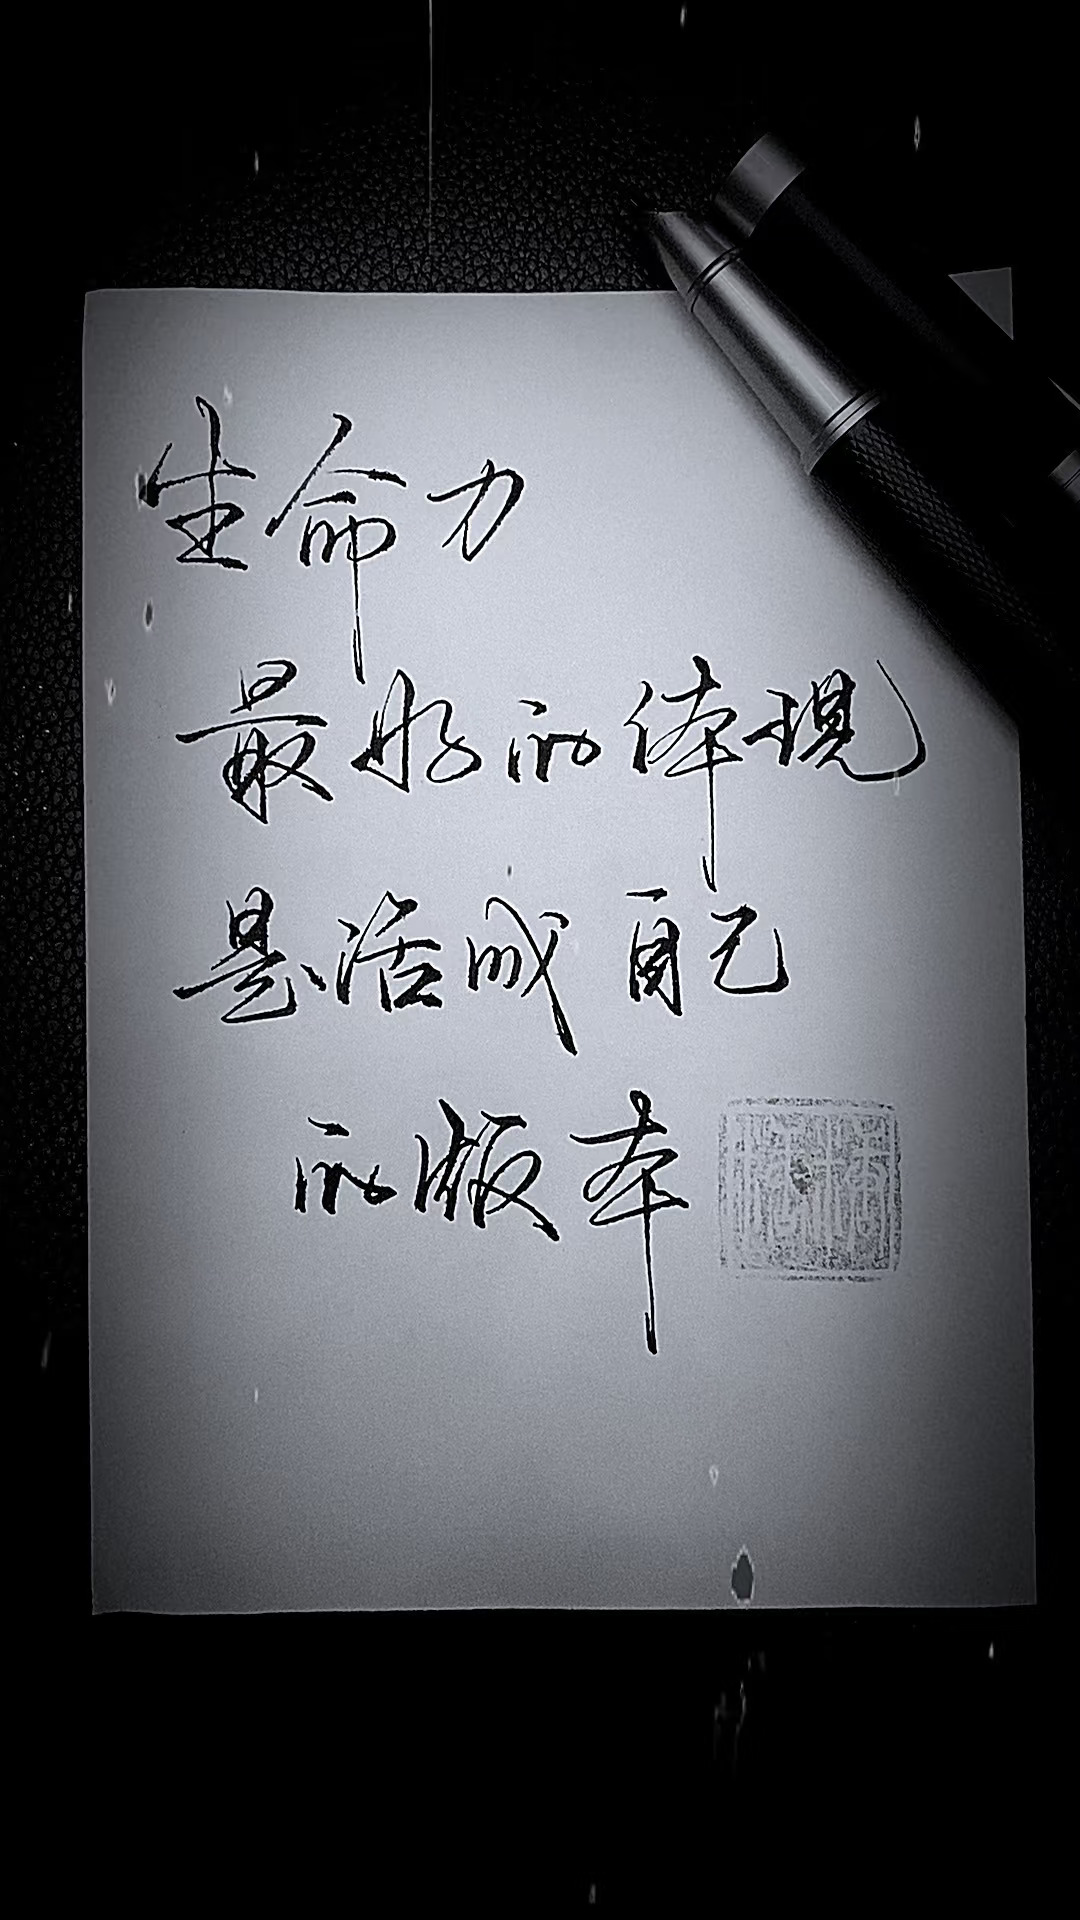 生命力
最好的体现
是活成自己
的版本